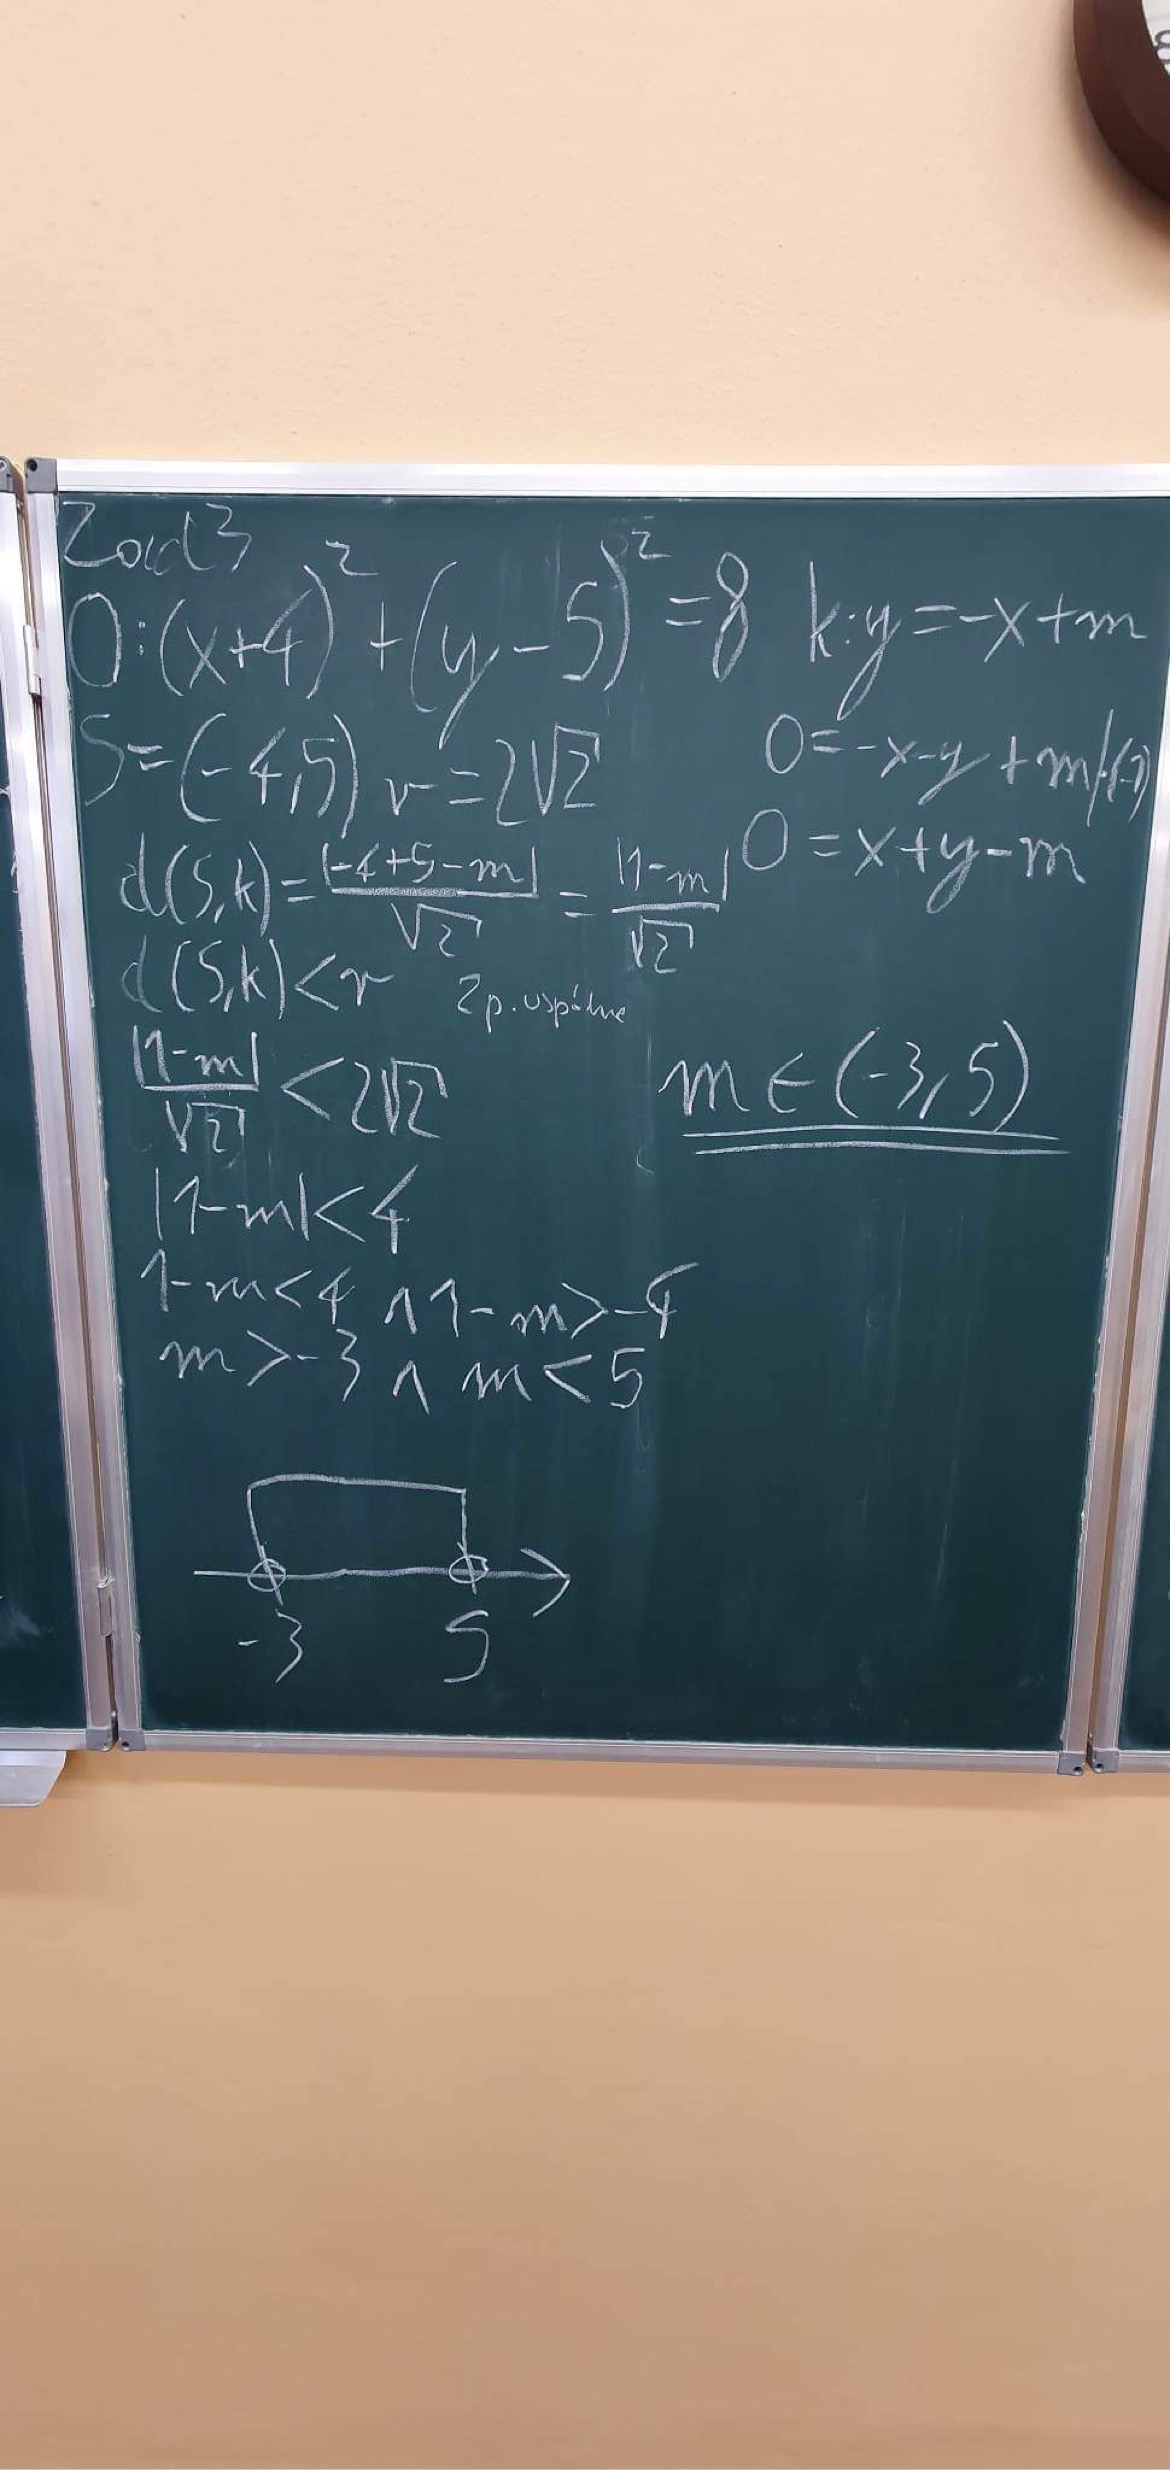 Zad3
O:(x+4)²+(y-5)²=8 k:y=-x+m
S=(-4,5) r=2√2 0=-x-y+m/·(-1)
0=x+y-m
d(S,k)=|-4+5-m|/√2=|1-m|/√2
d(S,k)<r 2p.wspólne
|1-m|/√2<2√2
m∈(-3,5)
|1-m|<4
1-m<4 ∧ 1-m>-4
m>-3 ∧ m<5
-3 5